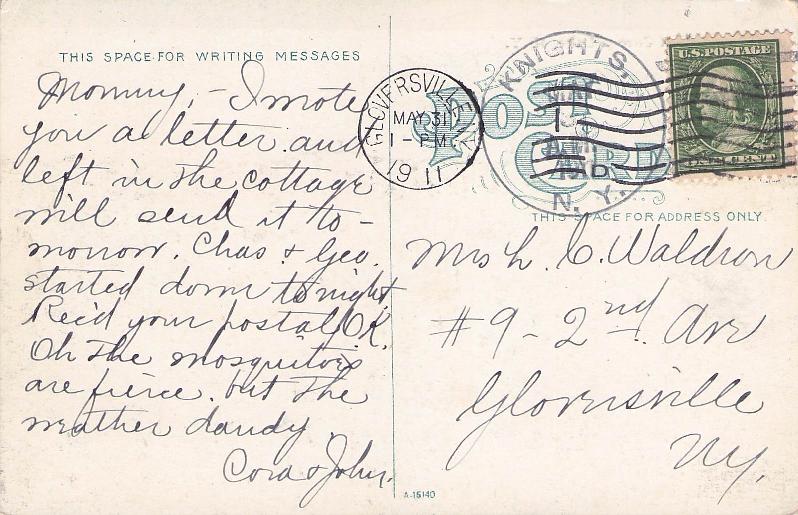 THIS SPACE FOR WRITING MESSAGES
Mommy, - I wrote
you a letter and
left in the cottage
will send it to-
morrow. Chas. & Geo.
started down tonight
Rec'd your postal OK.
Oh the mosquitoes
are fierce. but the
weather dandy.
Cora & John.
GLOVERSVILLE N.Y.
MAY 31
1 - PM
1911
POST CARD
KNIGHTS.
MAY
AM
N. Y.
U.S. POSTAGE
ONE CENT
THIS SPACE FOR ADDRESS ONLY
Mrs L. C. Waldron
#9 - 2nd. Ave
Gloversville
NY.
A-15140